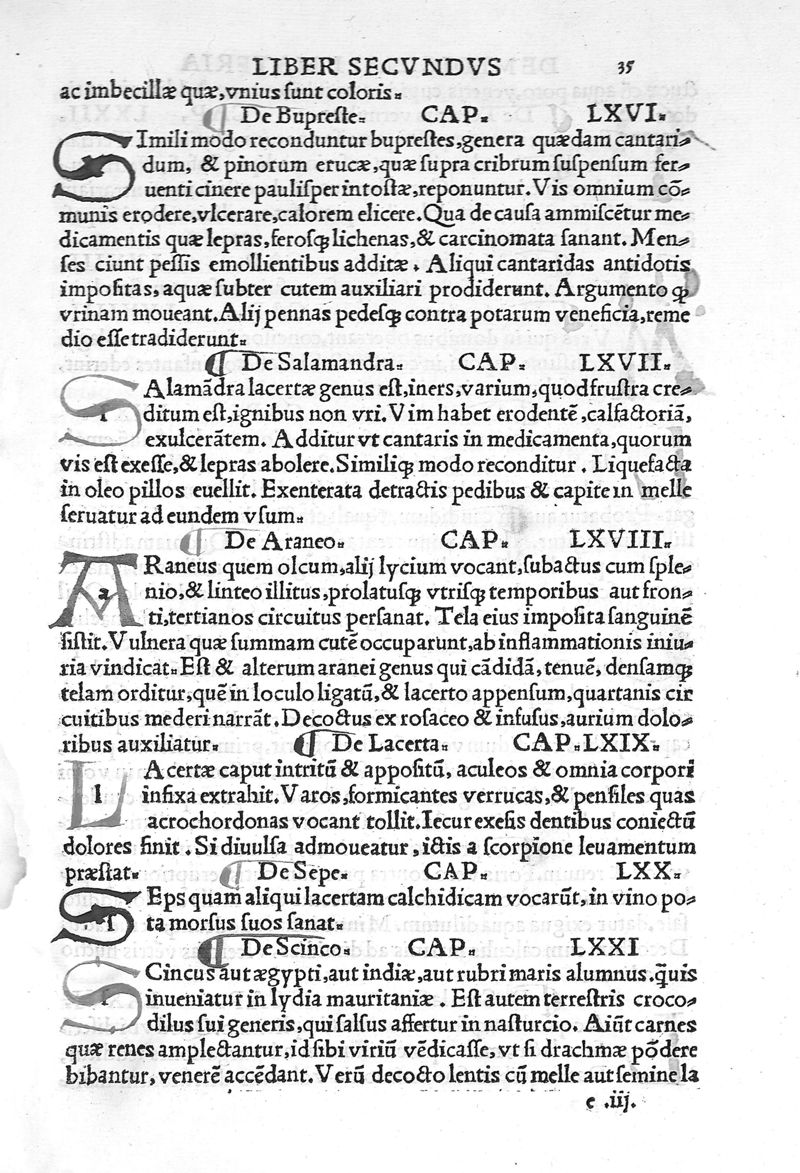 LIBER SECVNDVS 35
ac imbecillæ quæ,vnius ſunt coloris.
De Bupreſte. CAP. LXVI.
SImili modo reconduntur bupreſtes,genera quædam cantari-
dum, & pinorum erucæ,quæ ſupra cribrum ſuſpenſum fer-
uenti cinere pauliſper intoſtæ,reponuntur.Vis omnium cō-
munis erodere,vlcerare,calorem elicere.Qua de cauſa ammiſcētur me-
dicamentis quæ lepras,feroſqꝫ lichenas,& carcinomata ſanant. Men-
ſes ciunt peſſis emollientibus additæ . Aliqui cantaridas antidotis
impoſitas,aquæ ſubter cutem auxiliari prodiderunt. Argumento ꝙ
vrinam moueant.Alij pennas pedeſqꝫ contra potarum veneficia,reme
dio eſſe tradiderunt.
De Salamandra. CAP. LXVII.
SAlamādra lacertæ genus eſt,iners,varium,quod fruſtra cre-
ditum eſt,ignibus non vri.Vim habet erodentē,calfactoriā,
exulcerātem. Additur vt cantaris in medicamenta,quorum
vis eſt exeſſe,& lepras abolere.Similiqꝫ modo reconditur . Liquefacta
in oleo pillos euellit. Exenterata detractis pedibus & capite in melle
ſeruatur ad eundem vſum.
De Araneo. CAP. LXVIII.
ARaneus quem olcum,alij lycium vocant,ſubactus cum ſple-
nio,& linteo illitus,prolatuſqꝫ vtriſqꝫ temporibus aut fron-
ti,tertianos circuitus perſanat. Tela eius impoſita ſanguinē
ſiſtit.Vulnera quæ ſummam cutē occuparunt,ab inflammationis iniu-
ria vindicat.Eſt & alterum aranei genus qui cādidā,tenuē,denſamqꝫ
telam orditur,quē in loculo ligatū,& lacerto appenſum,quartanis cir
cuitibus mederi narrāt.Decoctus ex roſaceo & infuſus,aurium dolo-
ribus auxiliatur. De Lacerta. CAP.LXIX.
LAcertæ caput intritū & appoſitū, aculeos & omnia corpori
infixa extrahit.Varos,formicantes verrucas,& penſiles quas
acrochordonas vocant tollit.Iecur exeſis dentibus coniectū
dolores finit . Si diuulſa admoueatur,ictis a ſcorpione leuamentum
præſtat. De Sepe. CAP. LXX.
SEps quam aliqui lacertam calchidicam vocarūt,in vino po-
ta morſus ſuos ſanat.
De Scinco. CAP. LXXI
SCincus aut ægypti,aut indiæ,aut rubri maris alumnus.q̄uis
inueniatur in lydia mauritaniæ . Eſt autem terreſtris croco-
dilus ſui generis,qui ſalſus affertur in naſturcio. Aiūt carnes
quæ renes amplectantur,id ſibi viriū vēdicaſſe,vt ſi drachmæ pōdere
bibantur,venerē accēdant.Verū decocto lentis cū melle aut ſemine la
e .iij.